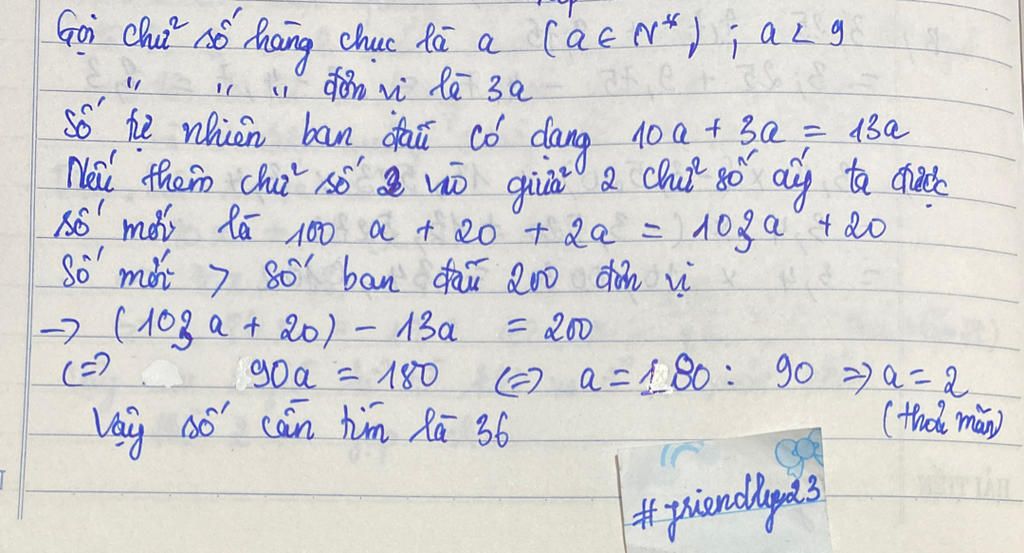 Gọi chữ số hàng chục là a (a ∈ N*) ; a < 9
" " " đơn vị là 3a
Số tự nhiên ban đầu có dạng 10a + 3a = 13a
Nếu thêm chữ số 2 vào giữa 2 chữ số ấy ta được
số mới là 100 a + 20 + 2a = 103a + 20
Số mới > số ban đầu 200 đơn vị
→ (103a + 20) - 13a = 200
(=> 90a = 180 (=> a = 180 : 90 => a = 2
(thoả mãn)
Vậy số cần tìm là 36
#friendly23